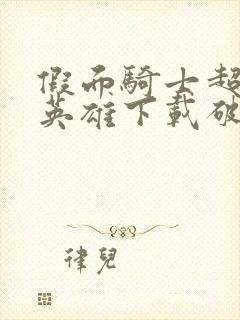 假面騎士超
英雄下載破
律兒